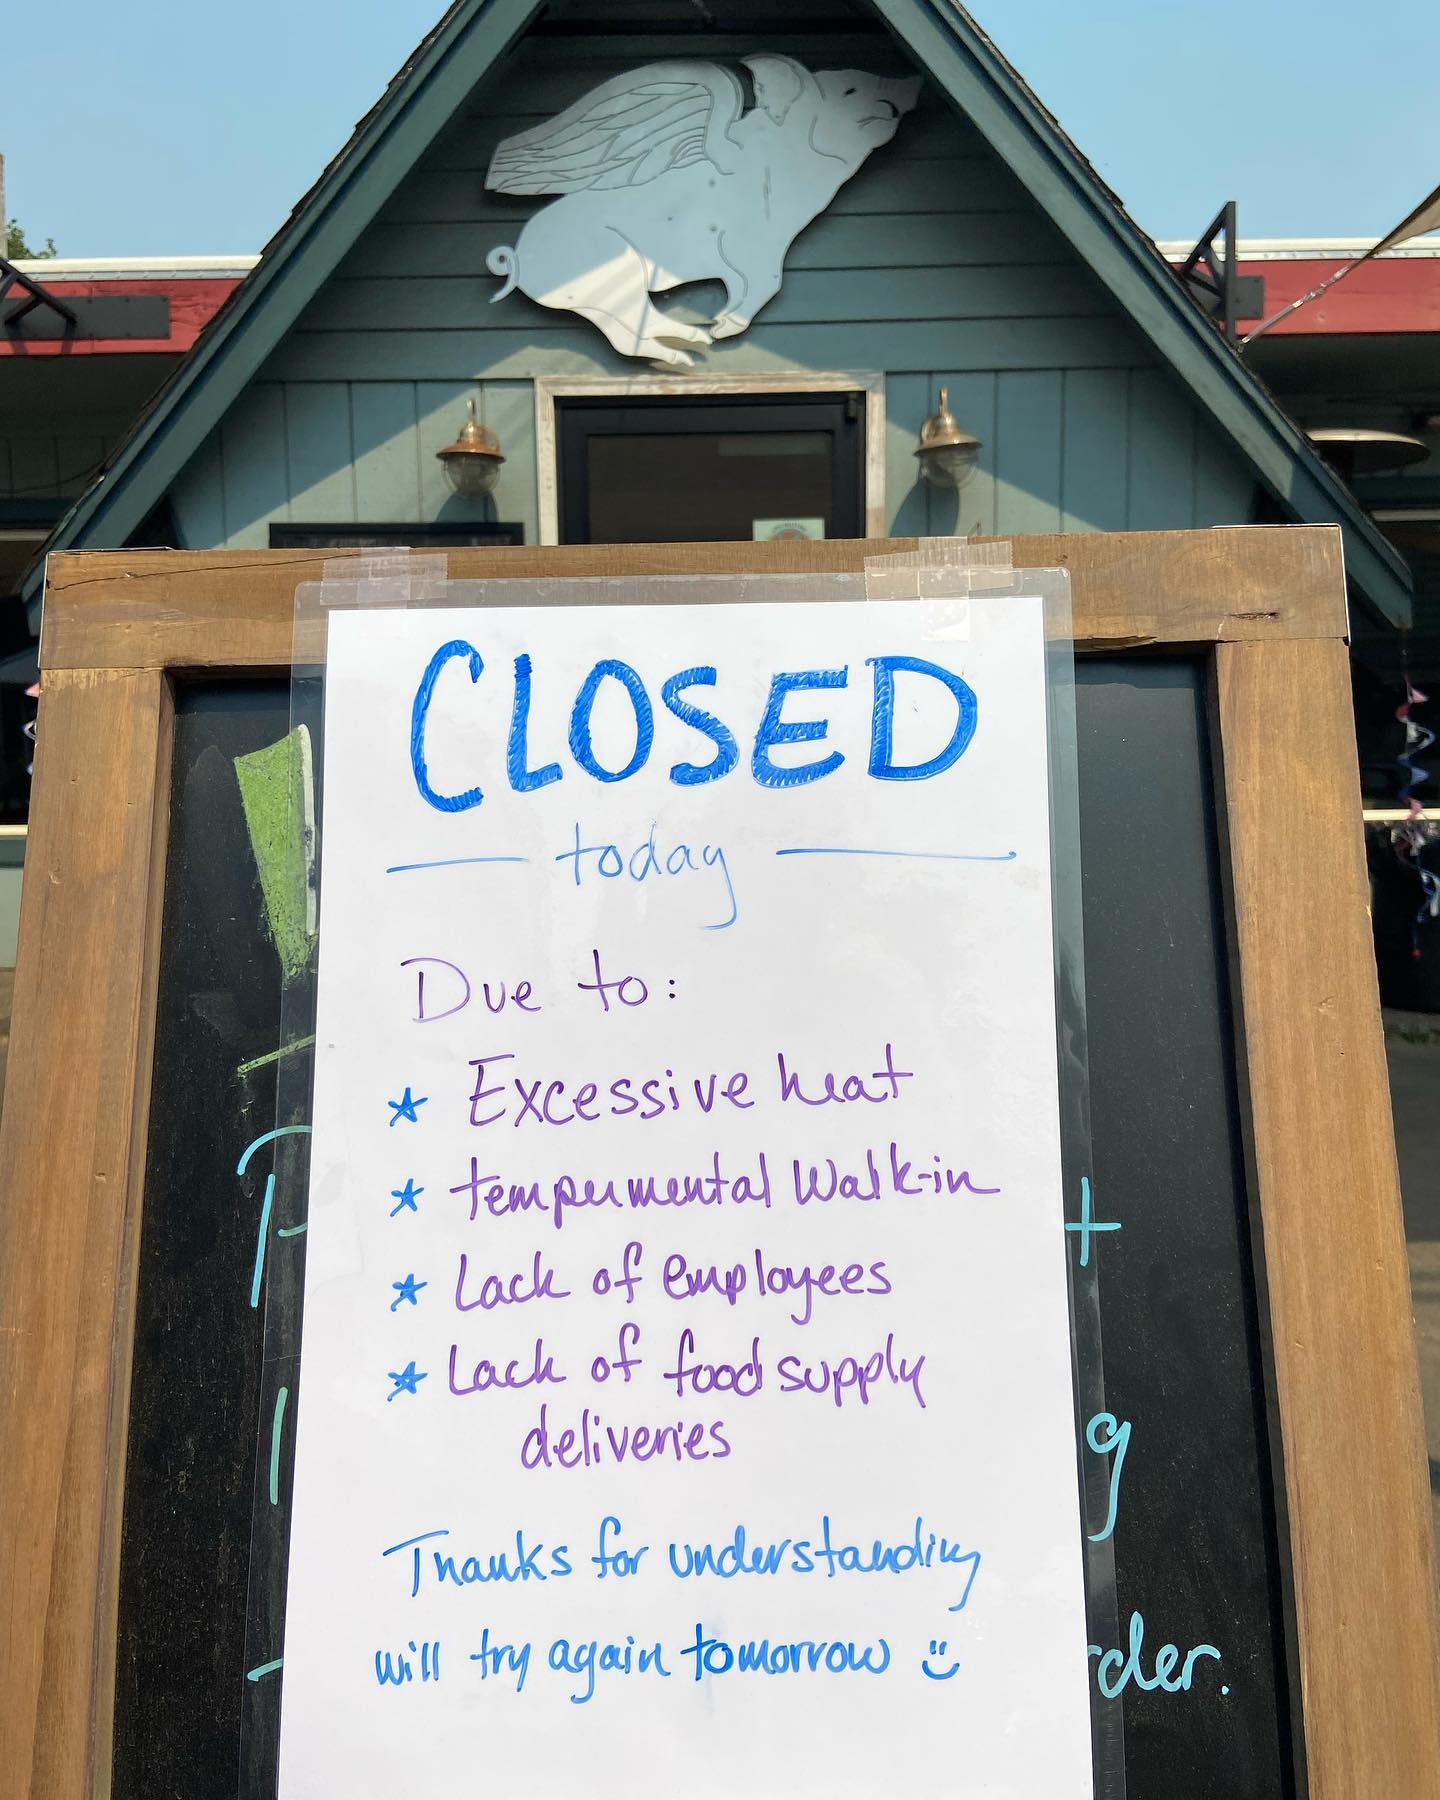 CLOSED
today
Due to:
* Excessive heat
* tempermental Walk-in
* Lack of employees
* Lack of food supply
deliveries
Thanks for understanding
will try again tomorrow